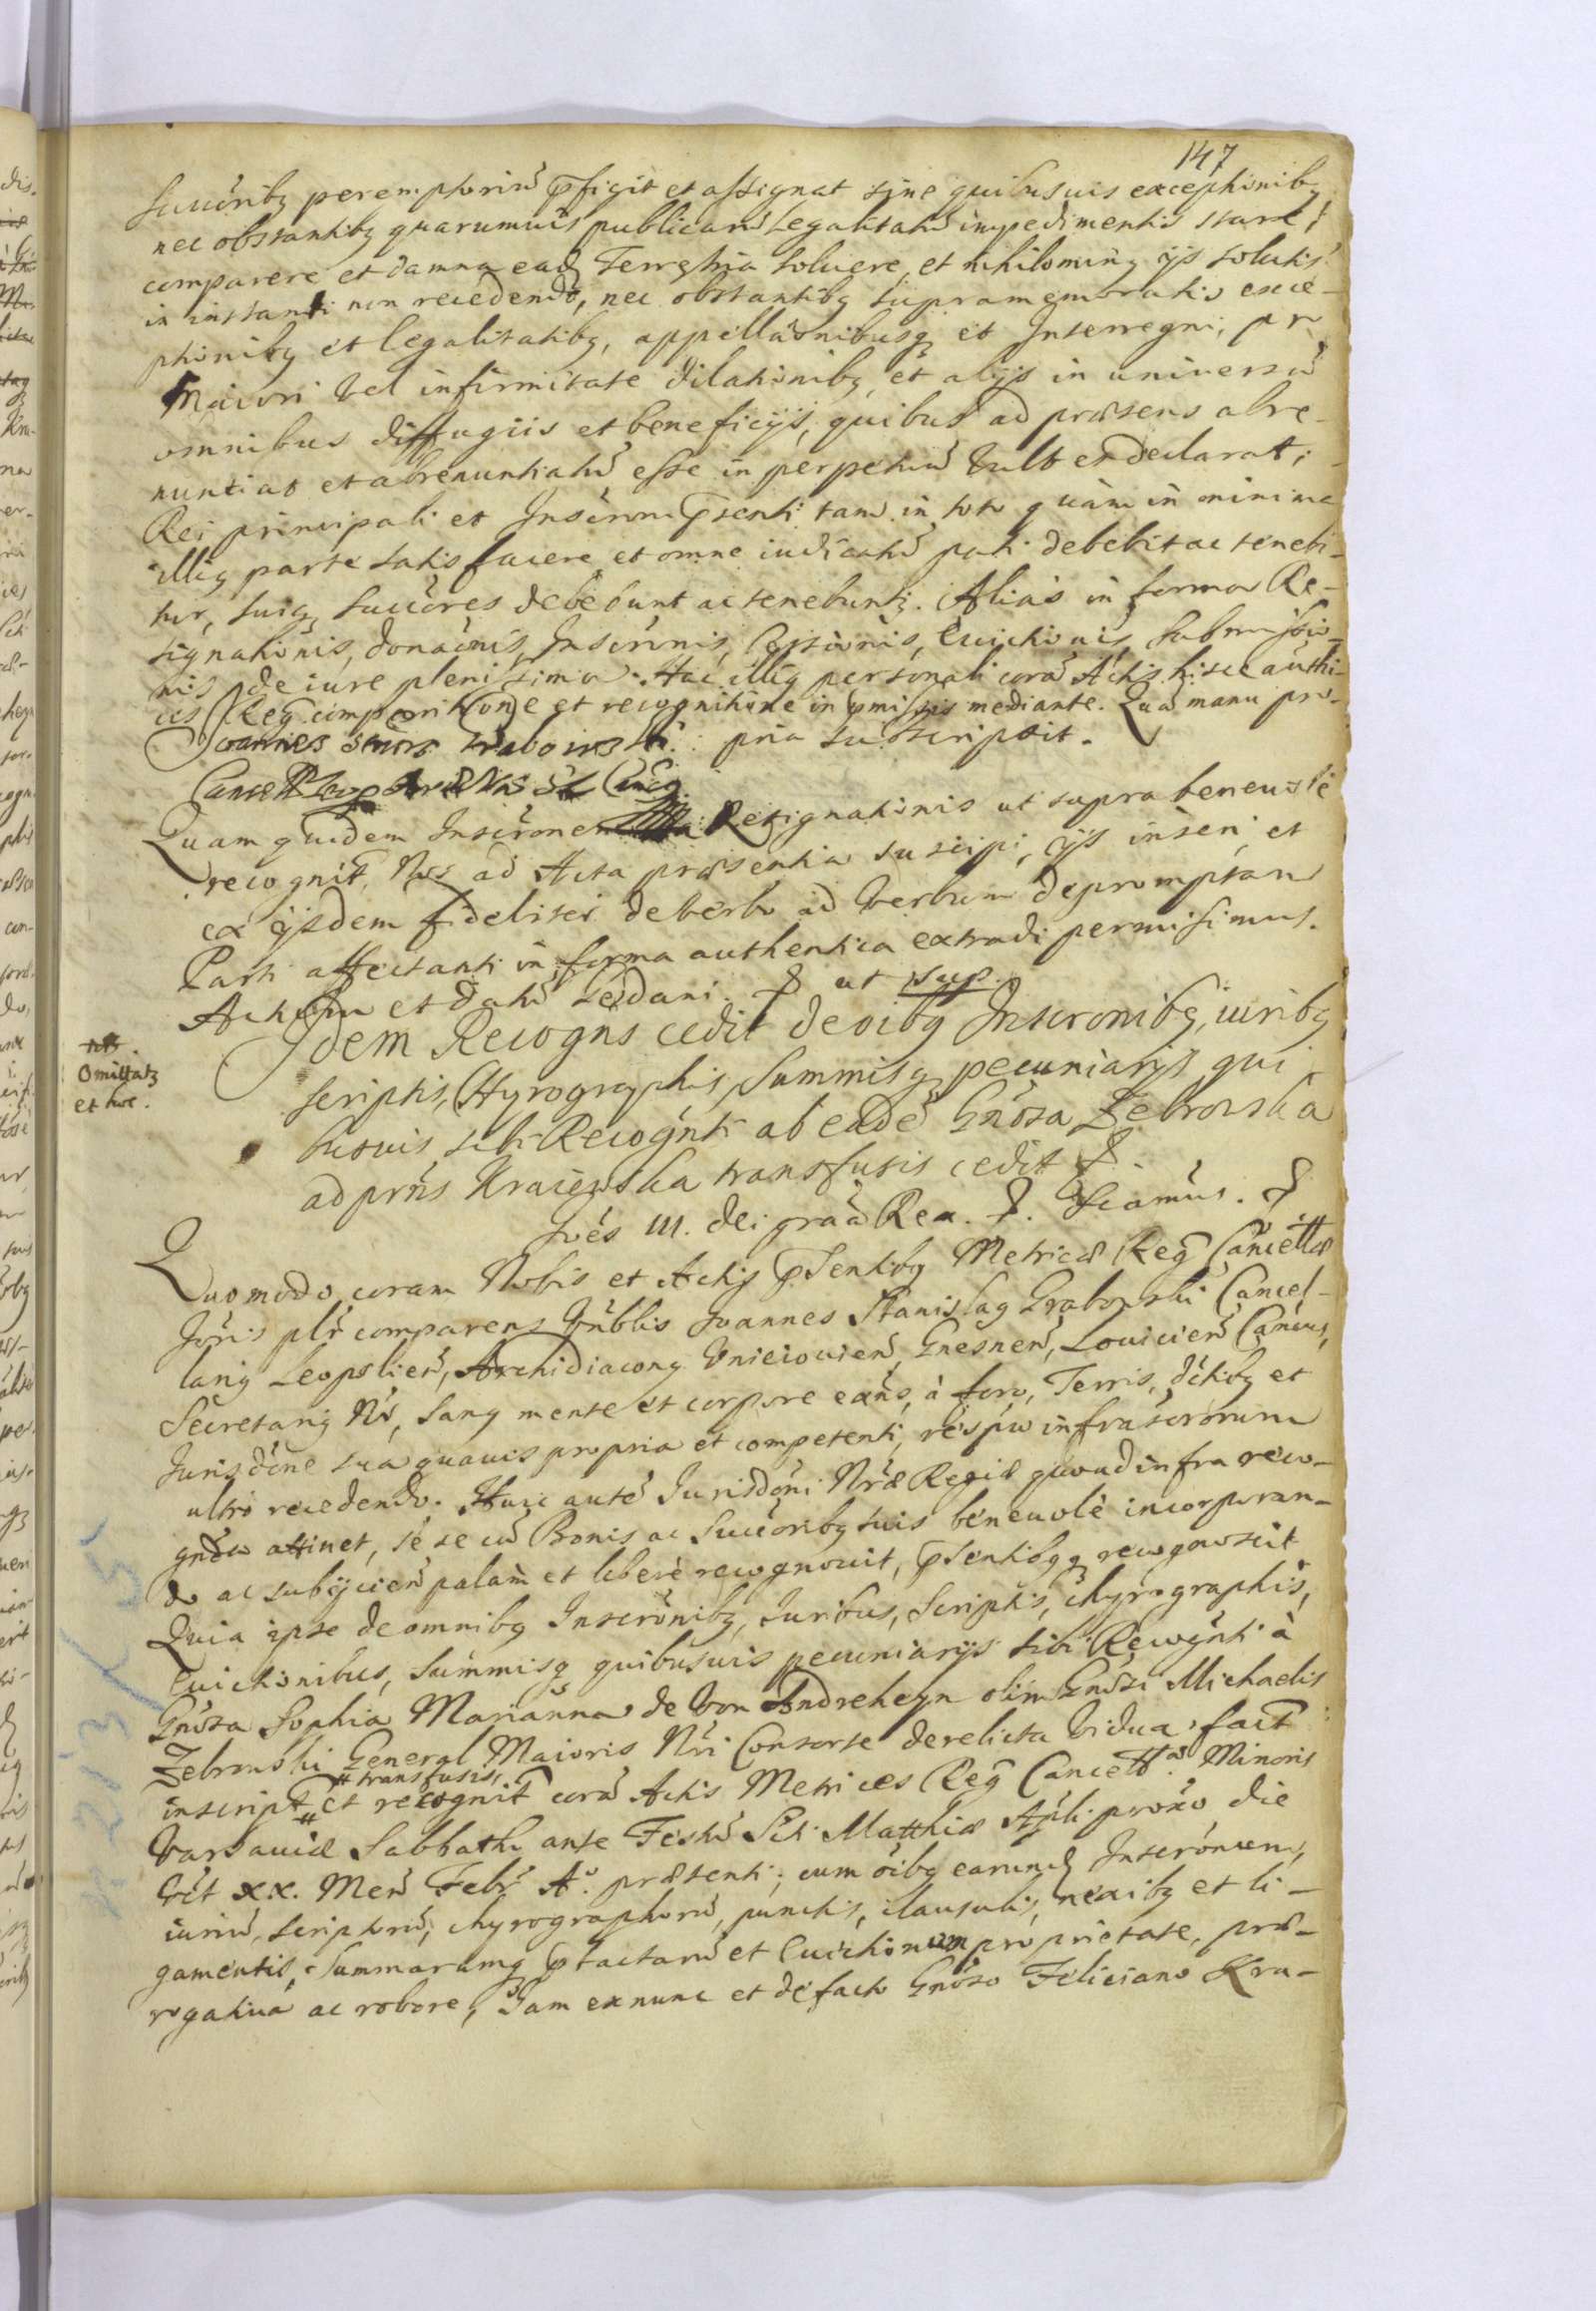 147
Succoribꝫ peremptoriū p̄figit et assignat sine quibusuis exceptionibꝫ
nec obstantibꝫ quarumuis publicarū Legalitatū impedimentis stare,
comparere et damna eadꝫ Terrestria soluere, et nihilominꝫ ijs solutis
in instanti non recedendo, nec obstantibꝫ supramemoratis exce-
ptionibꝫ et legalitatibꝫ, appellaōnibusqꝫ et Interregni, pr
Maiori vel infirmitate dilationibꝫ, et alijs in universū
omnibus diffugiis et beneficijs, quibus ad præsens abre-
nuntiat et abrenuntiatū esse in perpetuū vult et declarat;
Rei principali et Inscrōni p̄senti tam in toto quàm in minima
illiꝫ parte satisfacere et omne iudicatū pati debebit ac tenebi-
tur, suiqꝫ succōres debebunt ac tenebuntꝫ. Aliàs in forma Re-
signationis, donaōnis, Inscrōnis, Cessionis, Euictionis, Submissio-
nis de iure plenissima. Hac illiꝫ personali corā Actis hisce authi-
cis Reg comparitione et recognitione in p̄missis mediante. Quā manu pro-
Joannes Stanis Grabowski pria subscripsit.
Quam quidem Inscrōnem Resignationis ut supra beneuole
recognit, Nos ad Acta præsentia suscipi, ijs inseri, et
ex ijsdem fideliter de verbo ad verbum depromptam
Parti affectanti in forma authentica extradi permisimus.
Actum et datū Gedani. ut sup.
Idem Recogns cedit de oibꝫ Inscronibꝫ, iuribꝫ
NB
Omittatꝫ
et hoc.
scriptis, Chyrographis, Summisqꝫ pecuniarijs qui
busuis, sibi Recognti ab eadē Gnōsa Zebrowska
ad prns Kraiewska transfusis cedit
Joēs III. Dei graā Rex. Scamus.
Quomodo coram Nobis et Actis p̄sentibꝫ Metricæ Reg Cancellæ
Joris plr comparens Vnblis Joannes Stanislaꝫ Grabowski Cancel-
lariꝫ Leopolien, Archidiaconꝫ Unieiovien, Gnesnen, Lovicien Cancus,
Secretariꝫ Nr, sanꝫ mente et corpore exñs, à foro, Terris, dctibꝫ et
Jurisdōne sua quauis propria et competenti, respu infrascrorum
ultrò recedendo. Huic autē Jurisdōni Nræ Regiæ quoad infra reco-
gndu attinet, sè se cū Bonis ac Succōribꝫ suis beneuolè incorporan-
do ac subijcien palàm et liberè recognouit, p̄sentibꝫqꝫ recognoscit
Quia ipse de omnibꝫ Inscrōnibꝫ, Iuribus, Scriptis, chyrographis,
Euictionibus, Summisqꝫ quibusuis pecuniarijs sibi Recognti à
Gnōsa Sophia Marianna de Von Andreheyn olim Gnōsi Michaelis
Zebrowski General Maioris Nri Consorte derelicta Vidua fact
# transfusis,
inscript # et recognit corā Actis Metrices Reg Cancellæ Minoris
Varsauiæ Sabbatho ante Festū Scti Matthiæ Apli proxo die
vēt XX. Men Febr Aº. præsenti; cum oibꝫ earundꝫ Inscrōnum,
iuriū, scriptorū, chyrographorū, punctis, clausulis, nexibꝫ et li-
gamentis, Summarumqꝫ p̄tactarū et Euictionum proprietate, præ-
rogatiua ac robore, Iam ex nunc et de facto Gnōso Feliciano Kra-